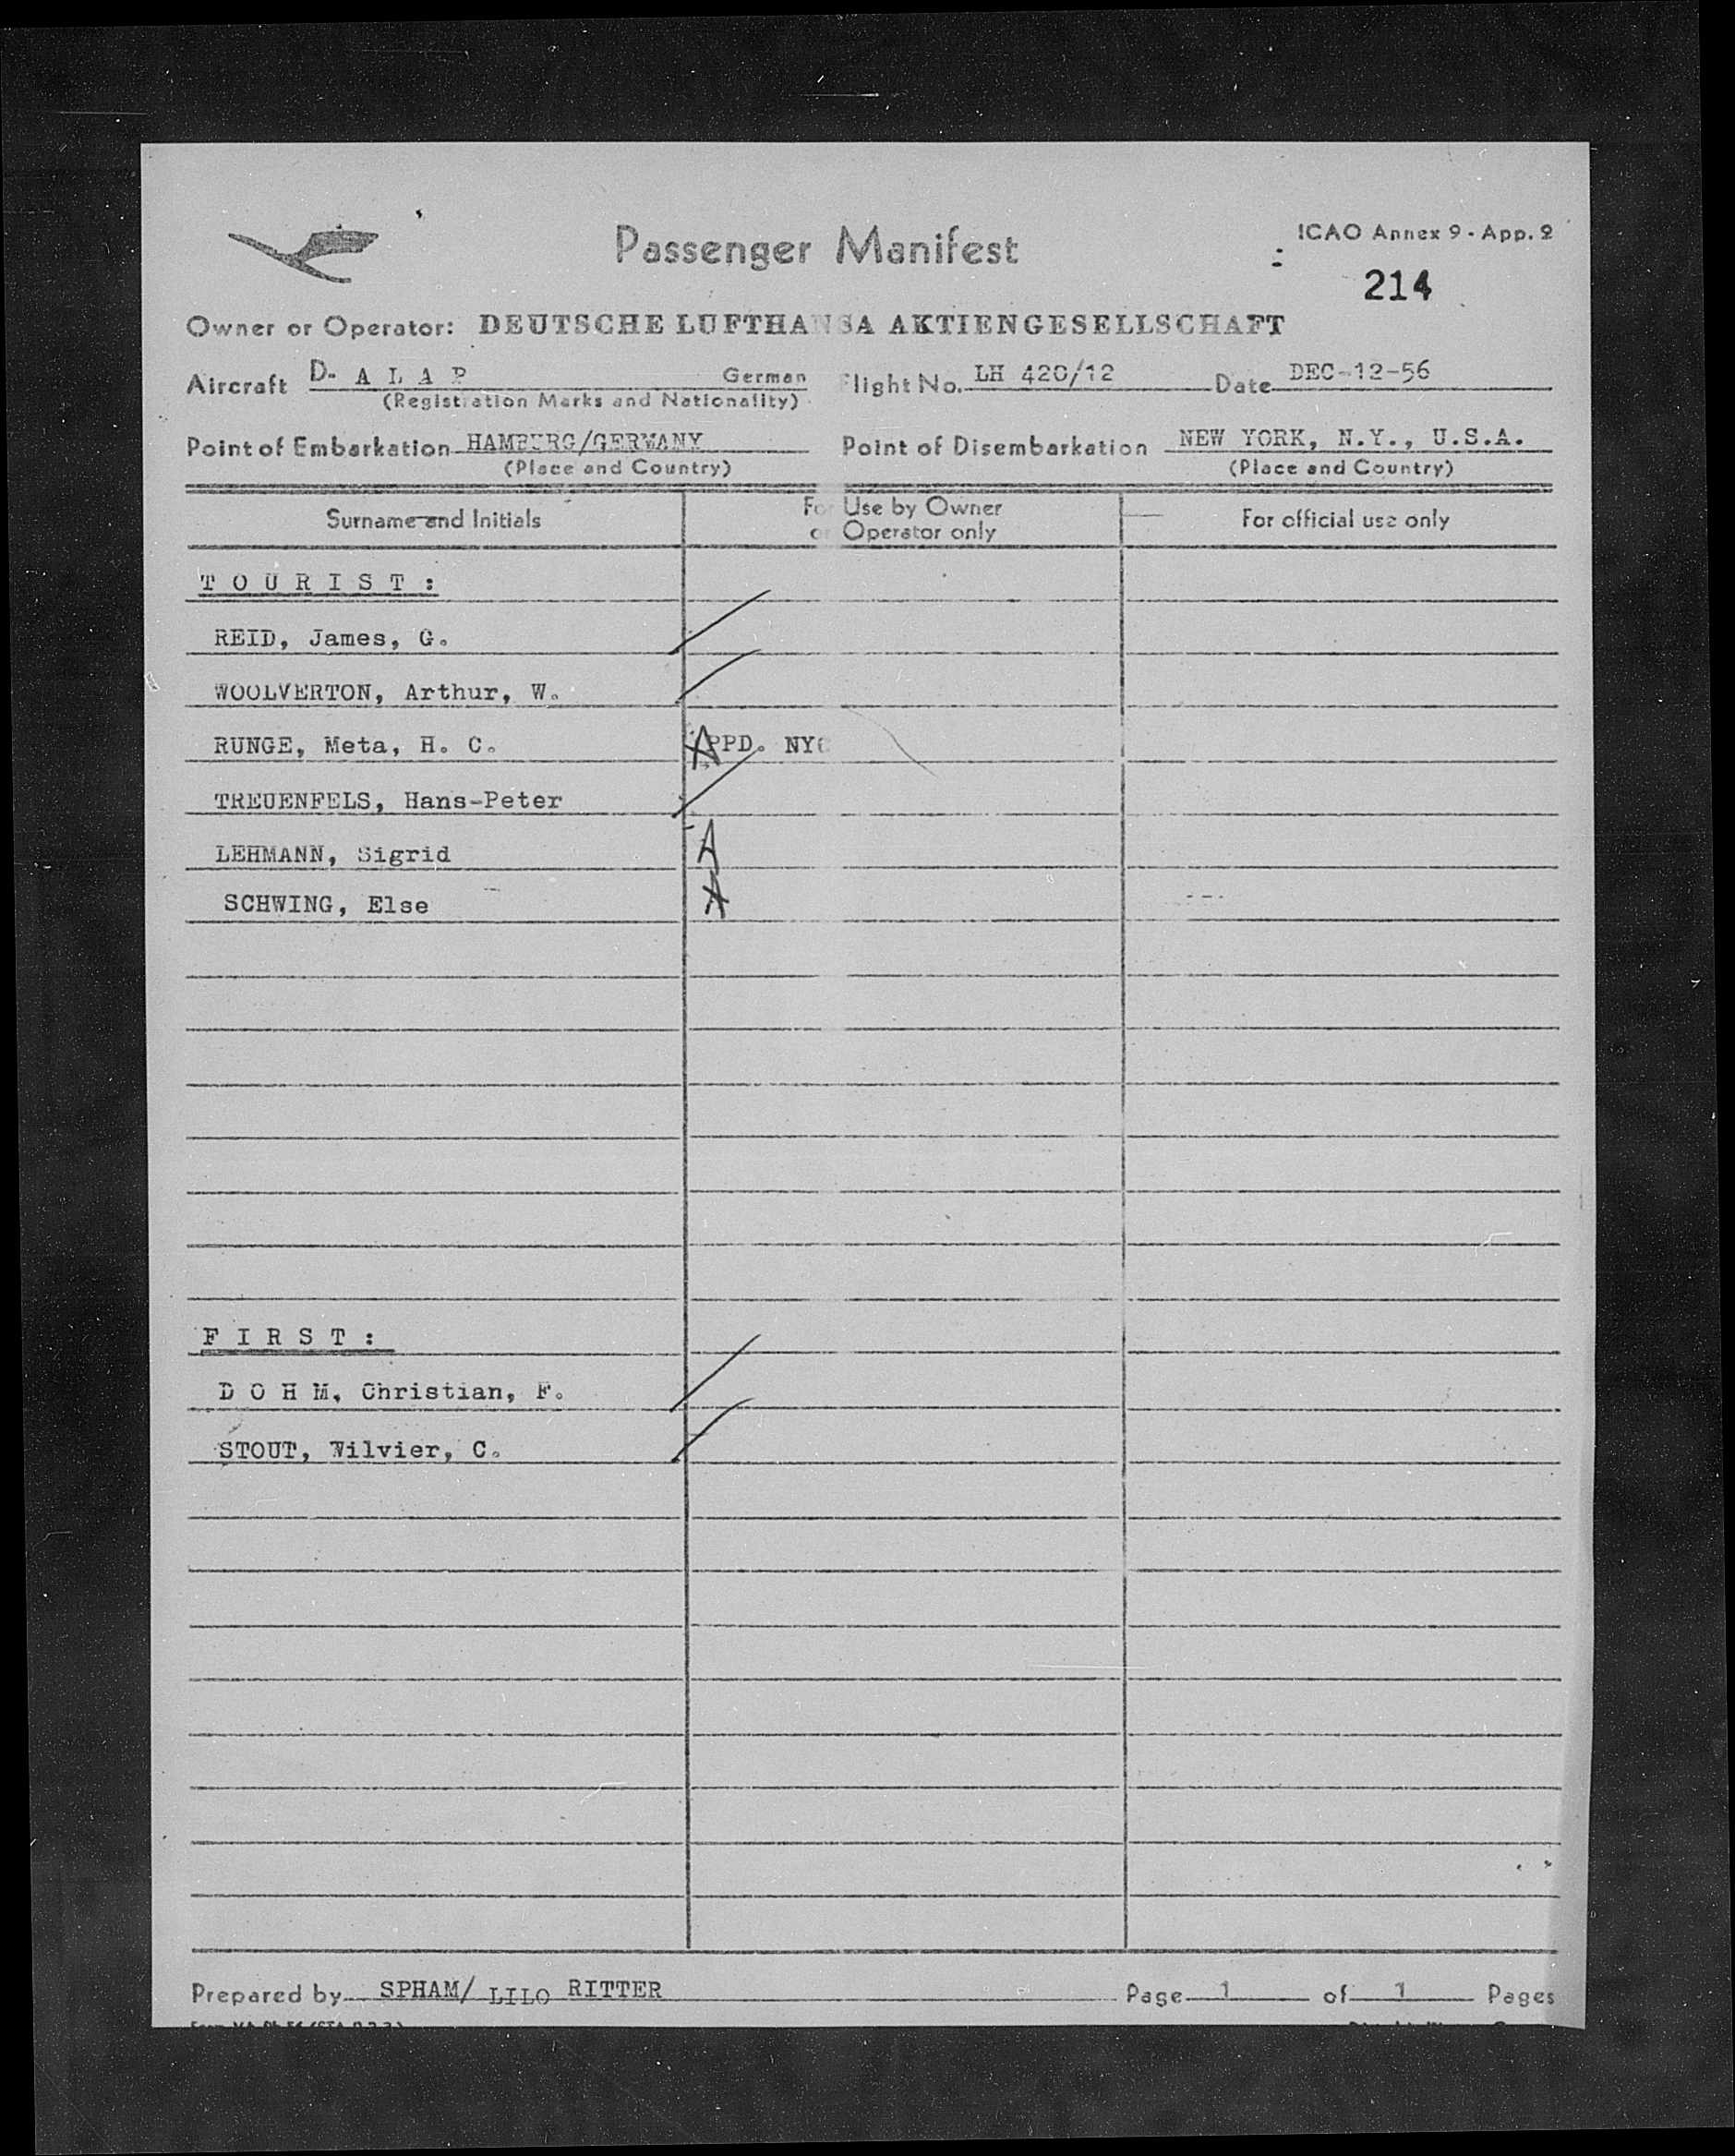 Passenger Manifest
ICAO Annex 9 - App. 2
214
Owner or Operator: DEUTSCHE LUFTHANSA AKTIENGESELLSCHAFT
Aircraft D- A L A P German Flight No. LH 420/12 Date DEC-12-56
(Registration Marks and Nationality)
Point of Embarkation HAMBURG/GERMANY Point of Disembarkation NEW YORK, N.Y., U.S.A.
(Place and Country) (Place and Country)
Surname and Initials
For Use by Owner
or Operator only
For official use only
T O U R I S T :
REID, James, G.
WOOLVERTON, Arthur, W.
RUNGE, Meta, H. C. APPD. NYC
TREUENFELS, Hans-Peter
LEHMANN, Sigrid A
SCHWING, Else A
F I R S T :
D O H M, Christian, F.
STOUT, Wilvier, C.
Prepared by SPHAM/ LILO RITTER Page 1 of 1 Pages